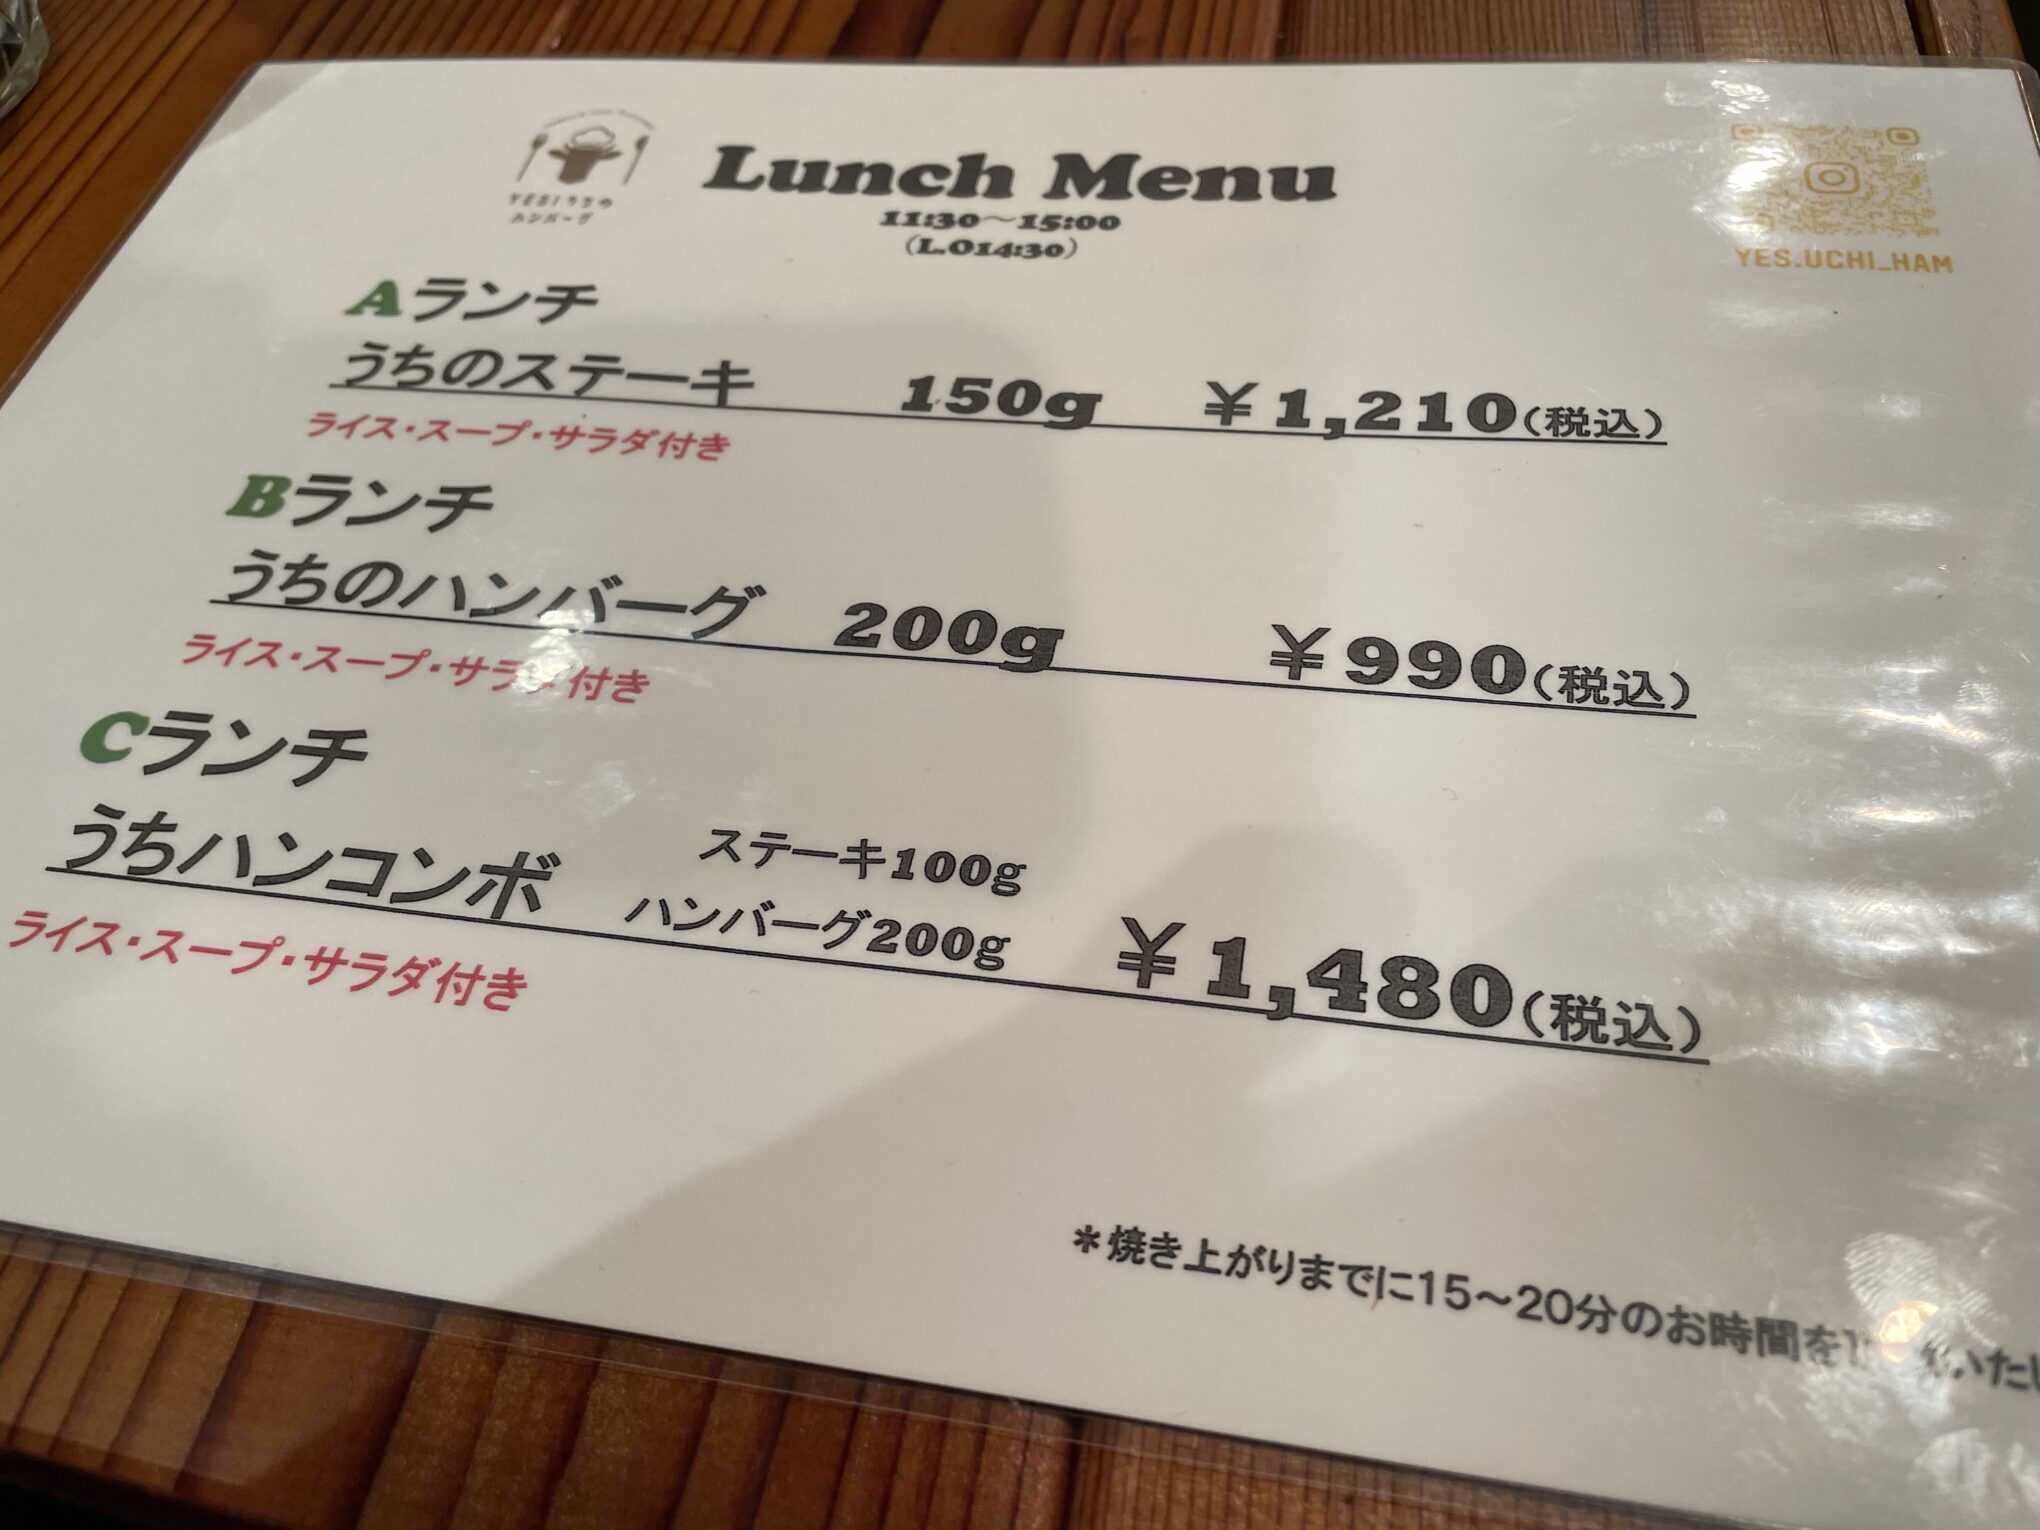 YES!うちの
ハンバーグ
Lunch Menu
11:30～15:00
(L.O14:30)
YES.UCHI_HAM
Aランチ
うちのステーキ 150g ￥1,210(税込)
ライス・スープ・サラダ付き
Bランチ
うちのハンバーグ 200g ￥990(税込)
ライス・スープ・サラダ付き
Cランチ
うちハンコンボ ステーキ100g
ハンバーグ200g ￥1,480(税込)
ライス・スープ・サラダ付き
＊焼き上がりまでに15～20分のお時間を